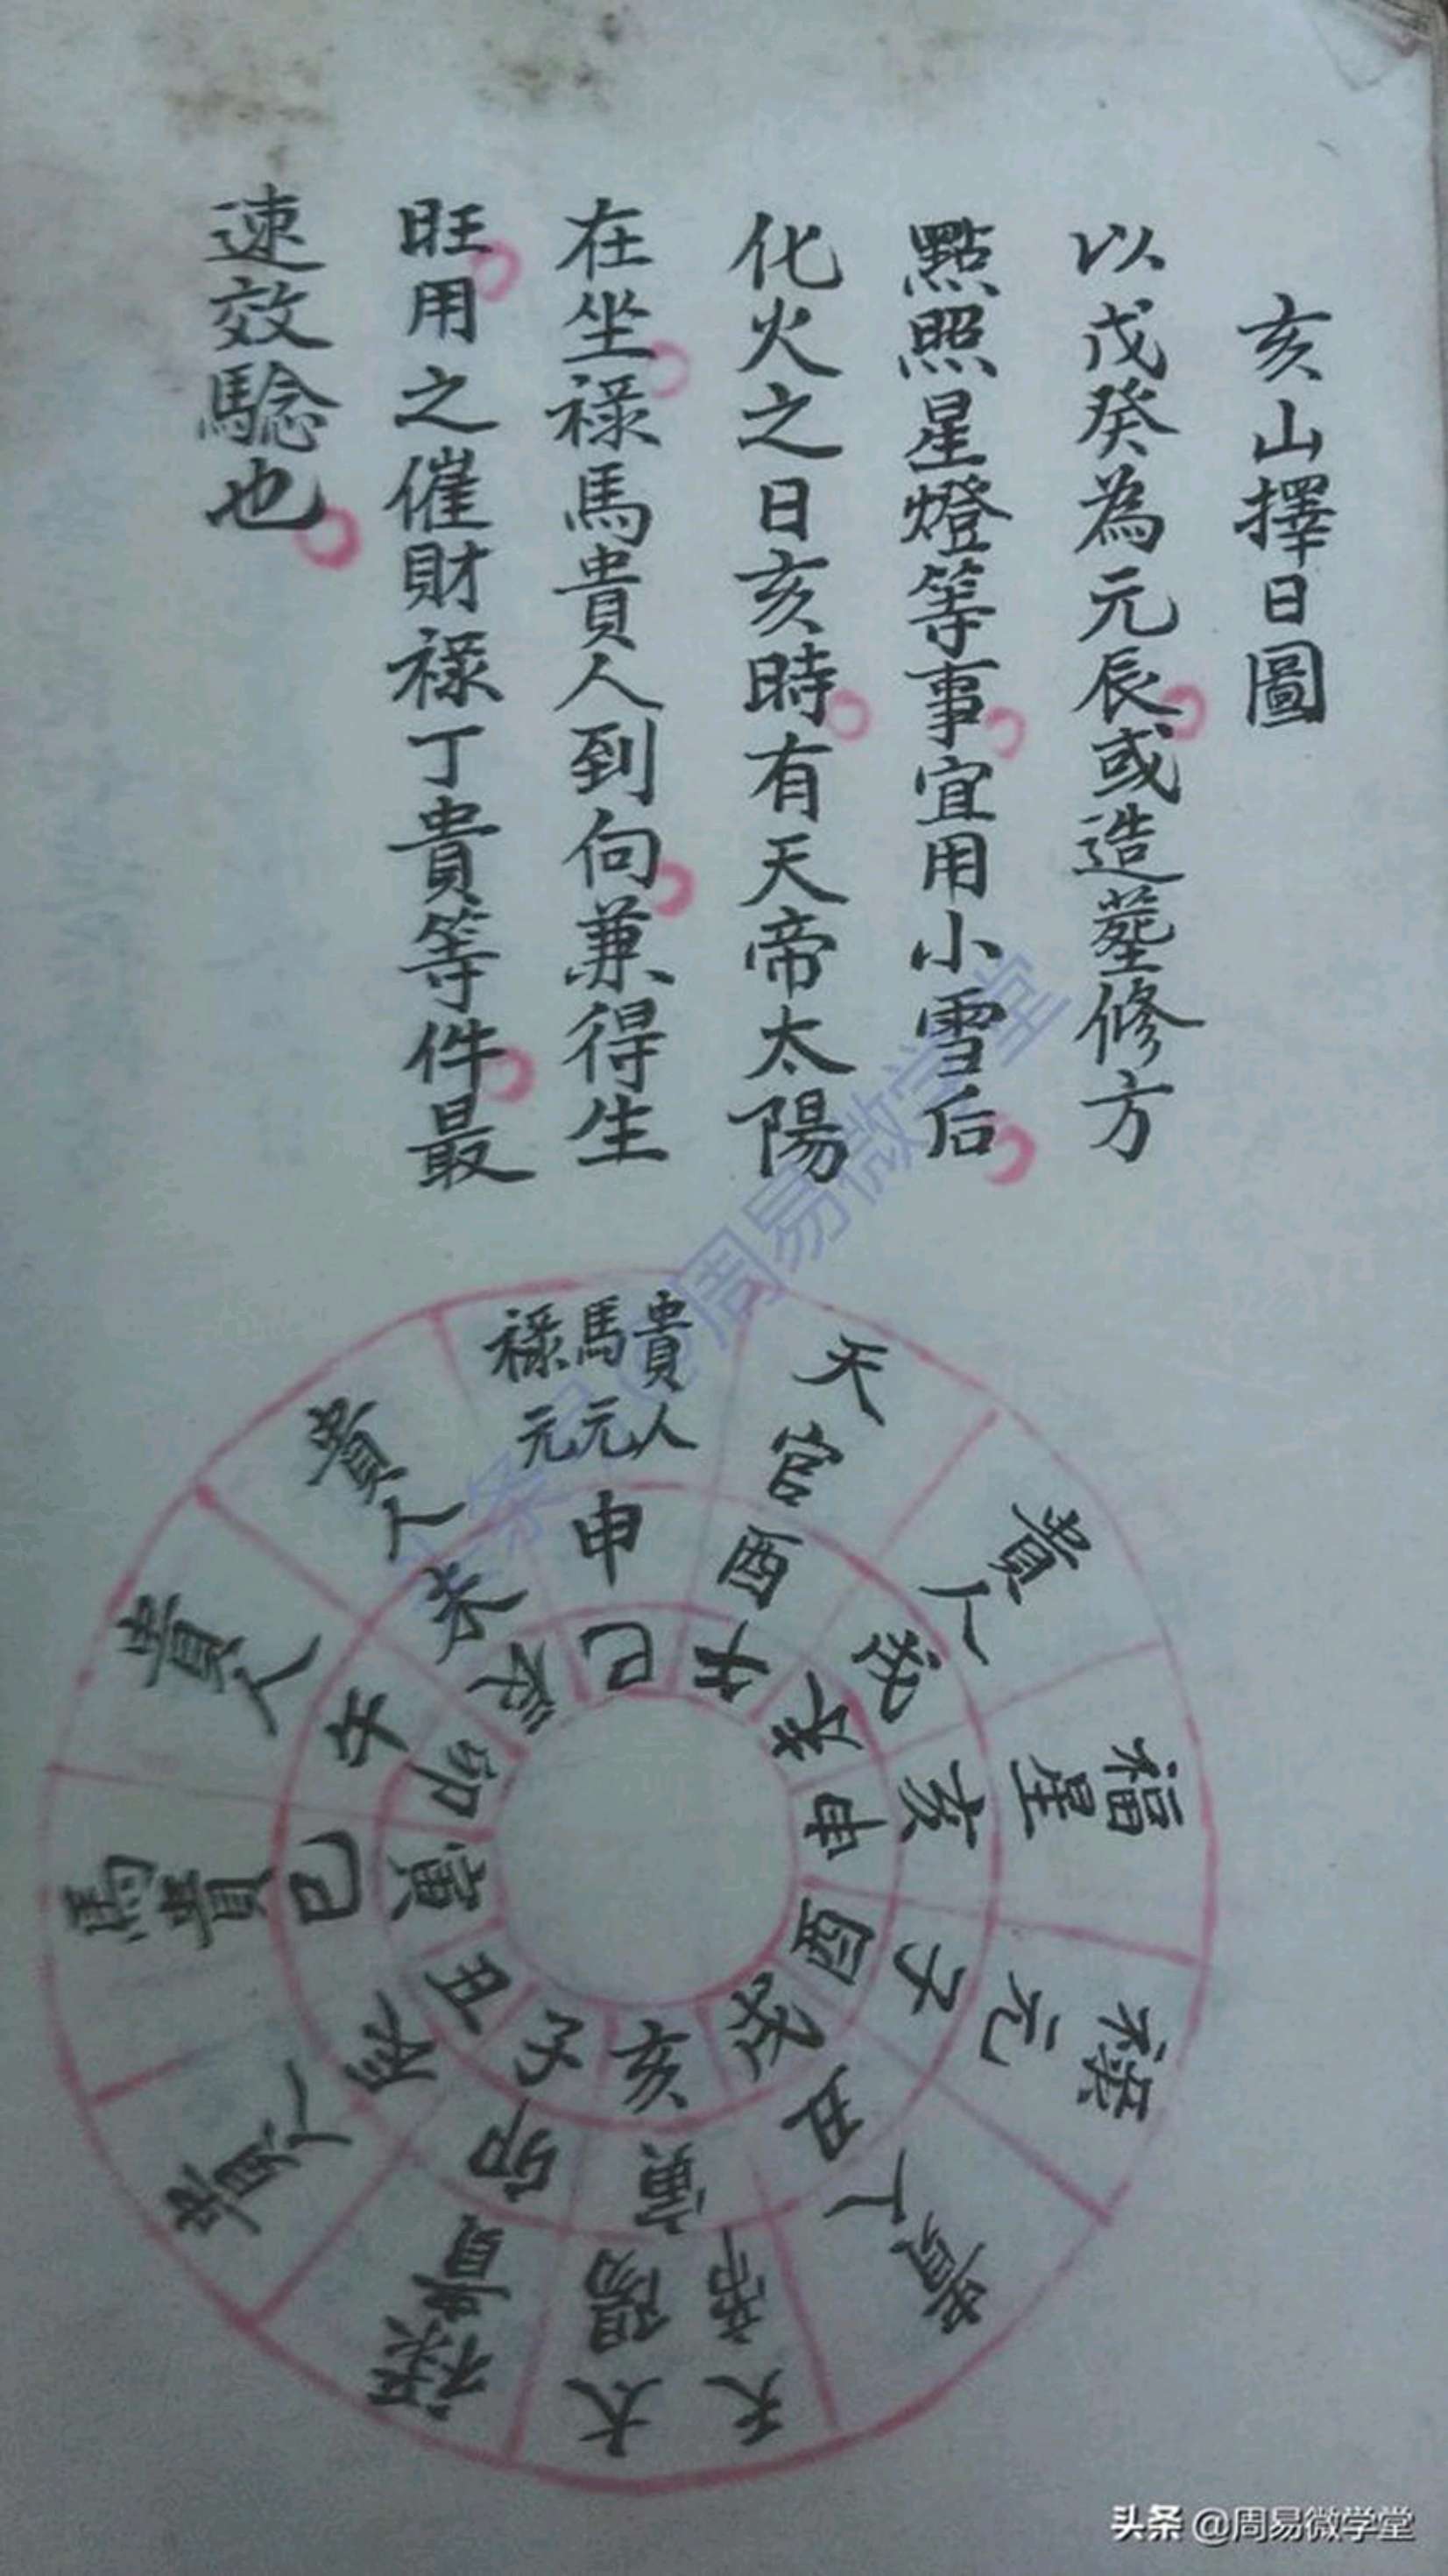 亥山擇日圖
以戊癸為元辰或造塟修方
點照星燈等事宜用小雪后
化火之日亥時有天帝太陽
在坐禄馬貴人到向兼得生
旺用之催財禄丁貴等件最
速效驗也
貴人
馬元
禄元
天官
貴人
福星
禄元
貴人
天帝
太陽
禄貴
貴人
馬貴
貴人
貴人
申
酉
戌
亥
子
丑
寅
卯
辰
巳
午
未
巳
午
未
申
酉
戌
亥
子
丑
寅
卯
辰
头条@周易微学堂
头条 @周易微学堂